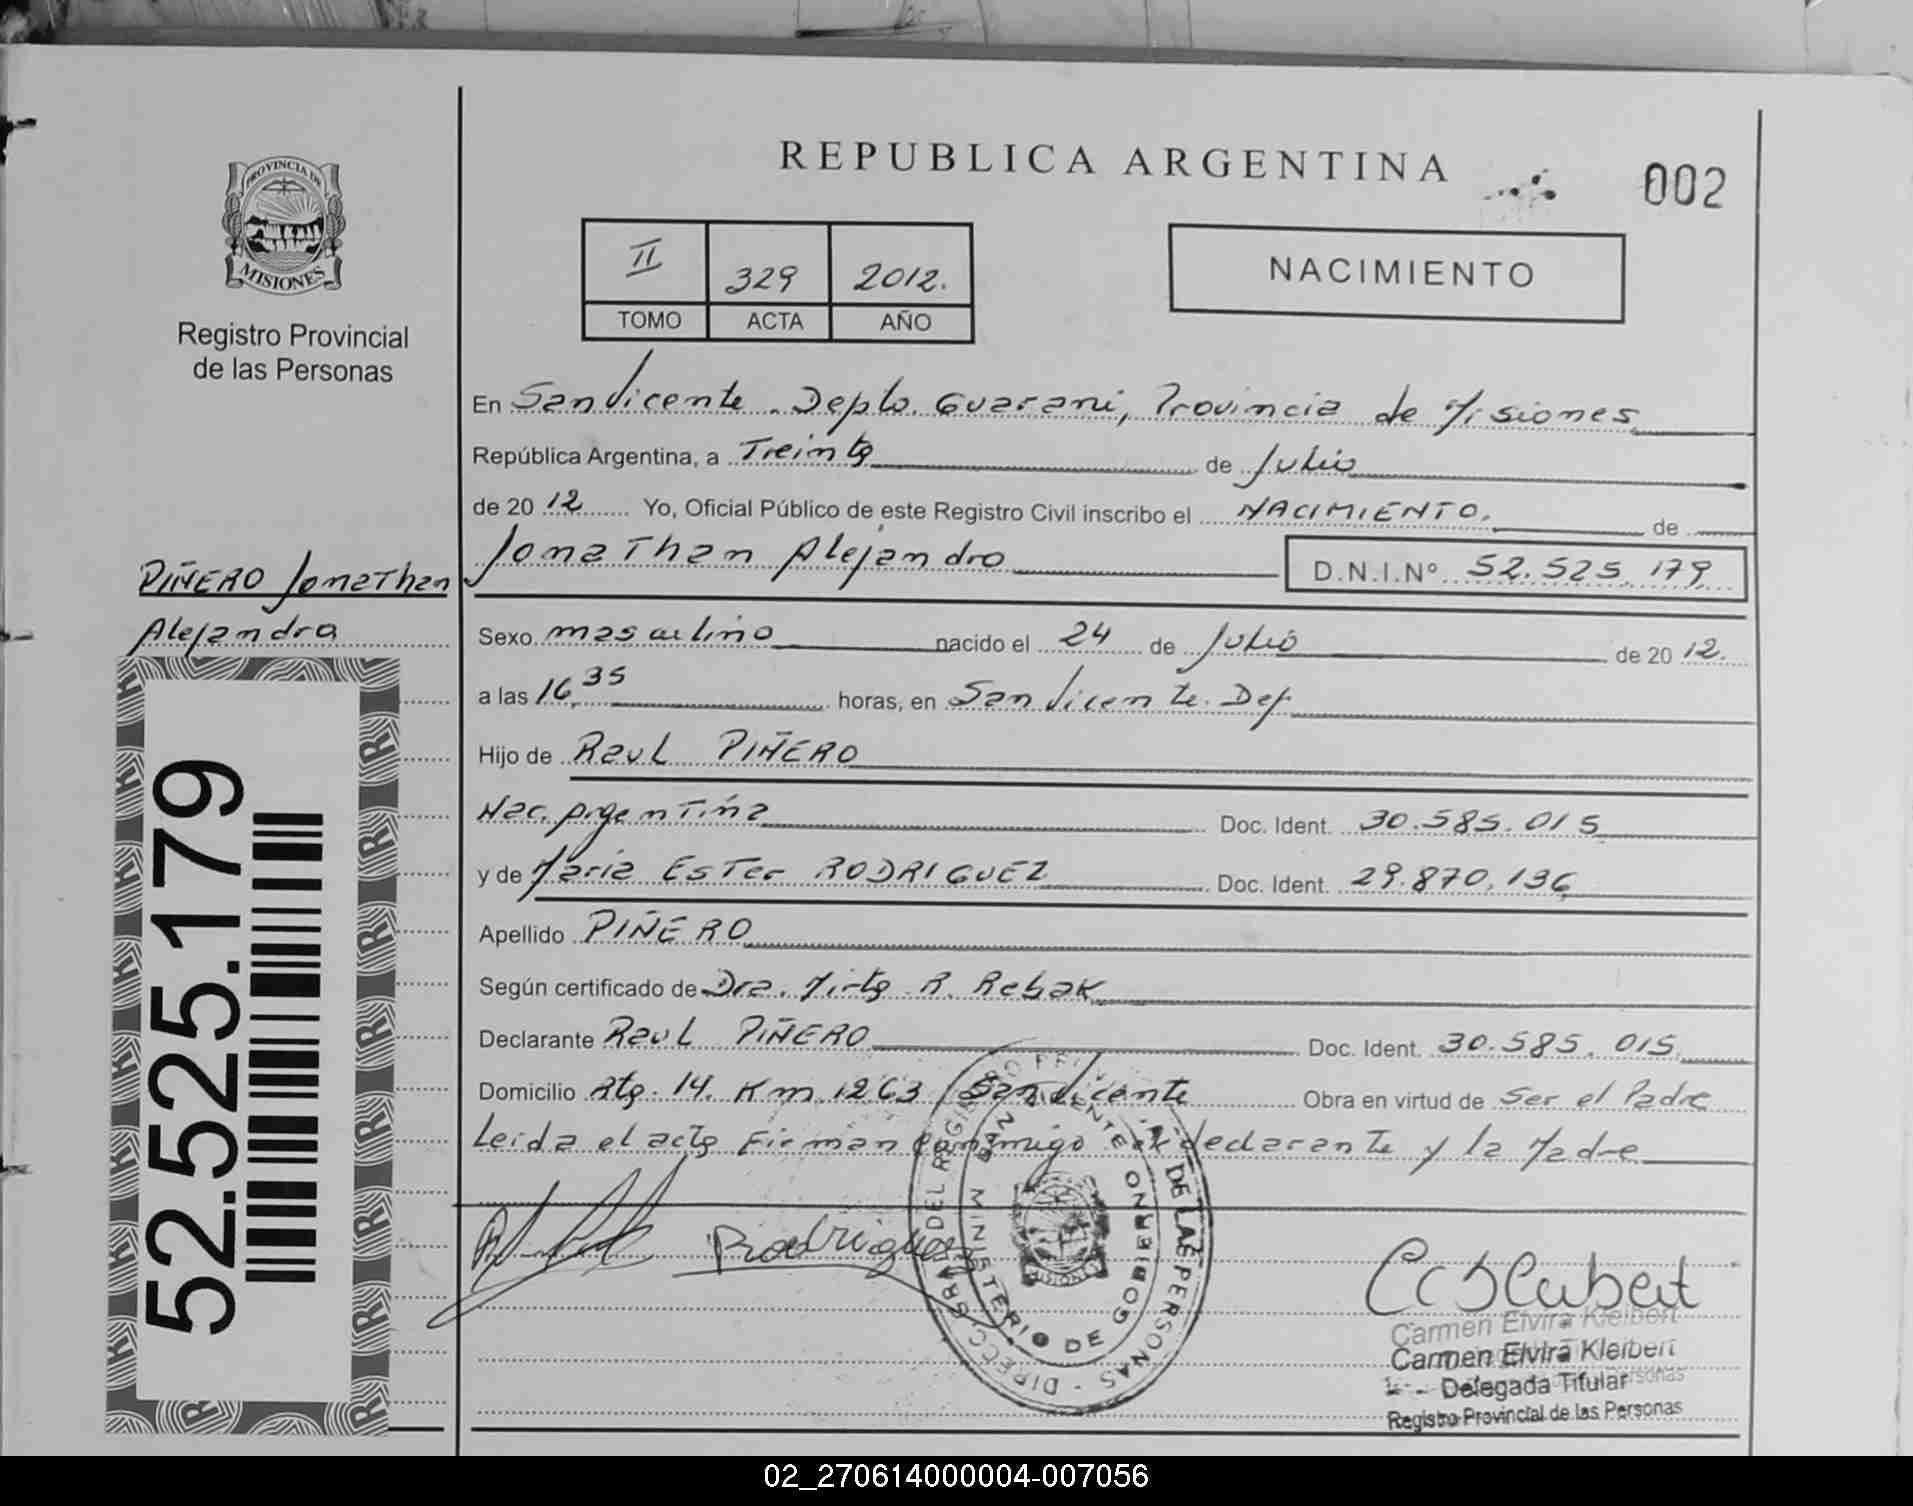 REPUBLICA ARGENTINA
002
PROVINCIA DE
MISIONES
Registro Provincial
de las Personas
II 329 2012.
TOMO ACTA AÑO
NACIMIENTO
En San Vicente. Depto. Guarani, Provincia de Misiones
República Argentina, a Treinta de Julio
de 20 12 Yo, Oficial Público de este Registro Civil inscribo el NACIMIENTO. de
Jonathan Alejandro D.N.I.Nº 52.525.179
PIÑERO Jonathan
Alejandro
Sexo masculino nacido el 24 de Julio de 20 12.
a las 16,35 horas, en San Vicente. Dep
Hijo de Raul PIÑERO
Nac. Argentina Doc. Ident. 30.585.015
y de Maria Ester RODRIGUEZ Doc. Ident. 29.870.136
Apellido PIÑERO
Según certificado de Dra. Mirta R. Rebak
Declarante Raul PIÑERO Doc. Ident. 30.585.015
Domicilio Rta. 14. Km 1263 San Vicente Obra en virtud de Ser el Padre
Leida el acta Firman conmigo el declarante y la Madre
52.525.179
Rodriguez
DIRECC. GRAL. DEL REGISTRO PROV. DE LAS PERSONAS
SAN VICENTE
MINISTERIO DE GOBIERNO
MISIONES
Carmen Elvira Kleibert
Carmen Elvira Kleibert
Delegada Titular
Registro Provincial de las Personas
02_270614000004-007056